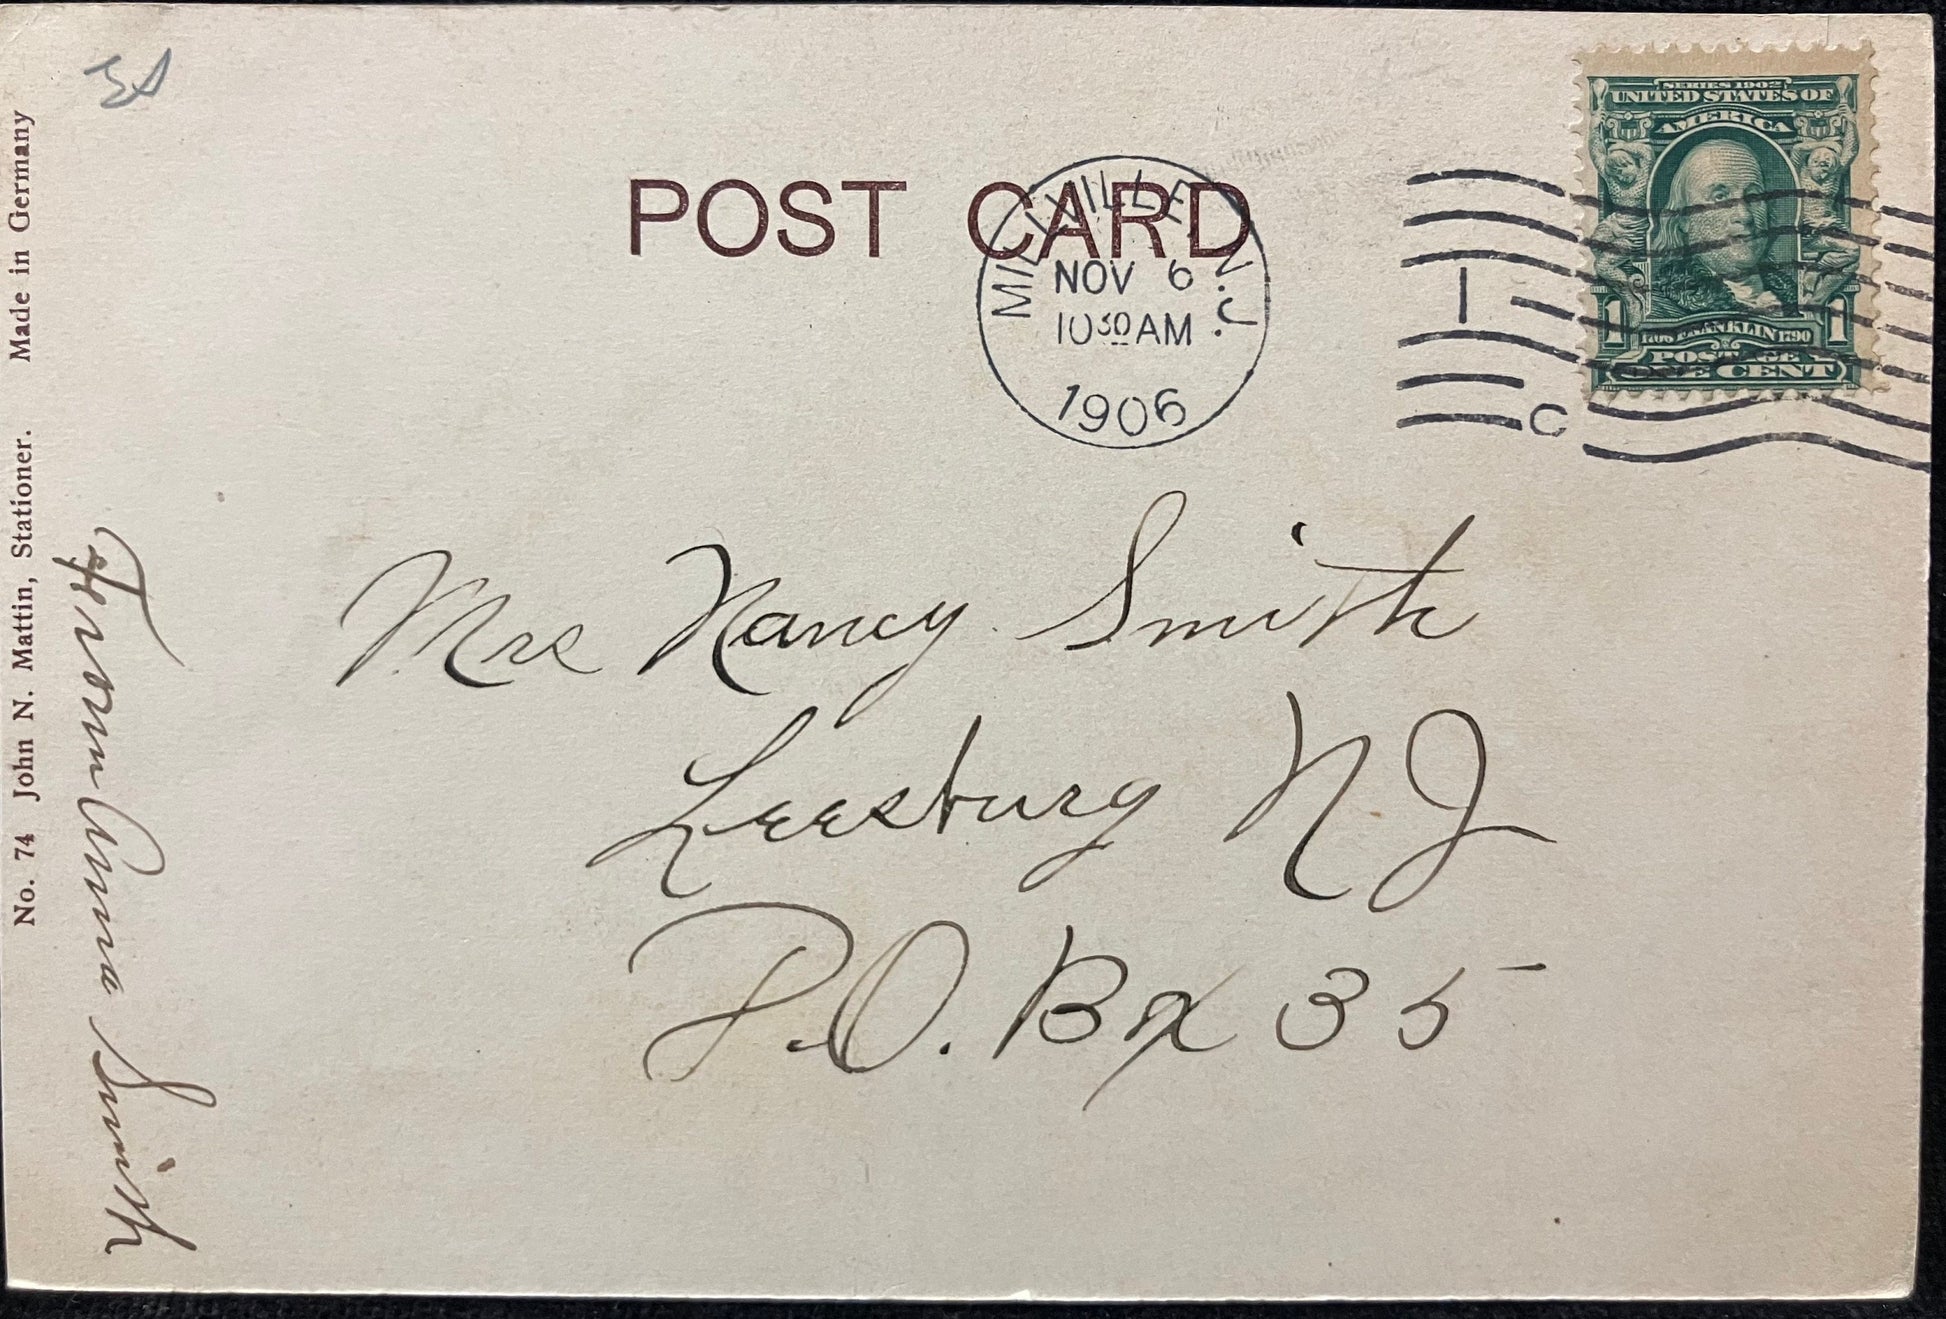 POST CARD
MILLVILLE, N.J.
NOV 6
10 30 AM
1906
1
C
SERIES 1902
UNITED STATES OF
AMERICA
1706 FRANKLIN 1790
1 1
POSTAGE
ONE CENT
Mrs Nancy Smith
Leesburg NJ
P.O. Bx 35
From Anna Smith
No. 74 John N. Mattin, Stationer. Made in Germany